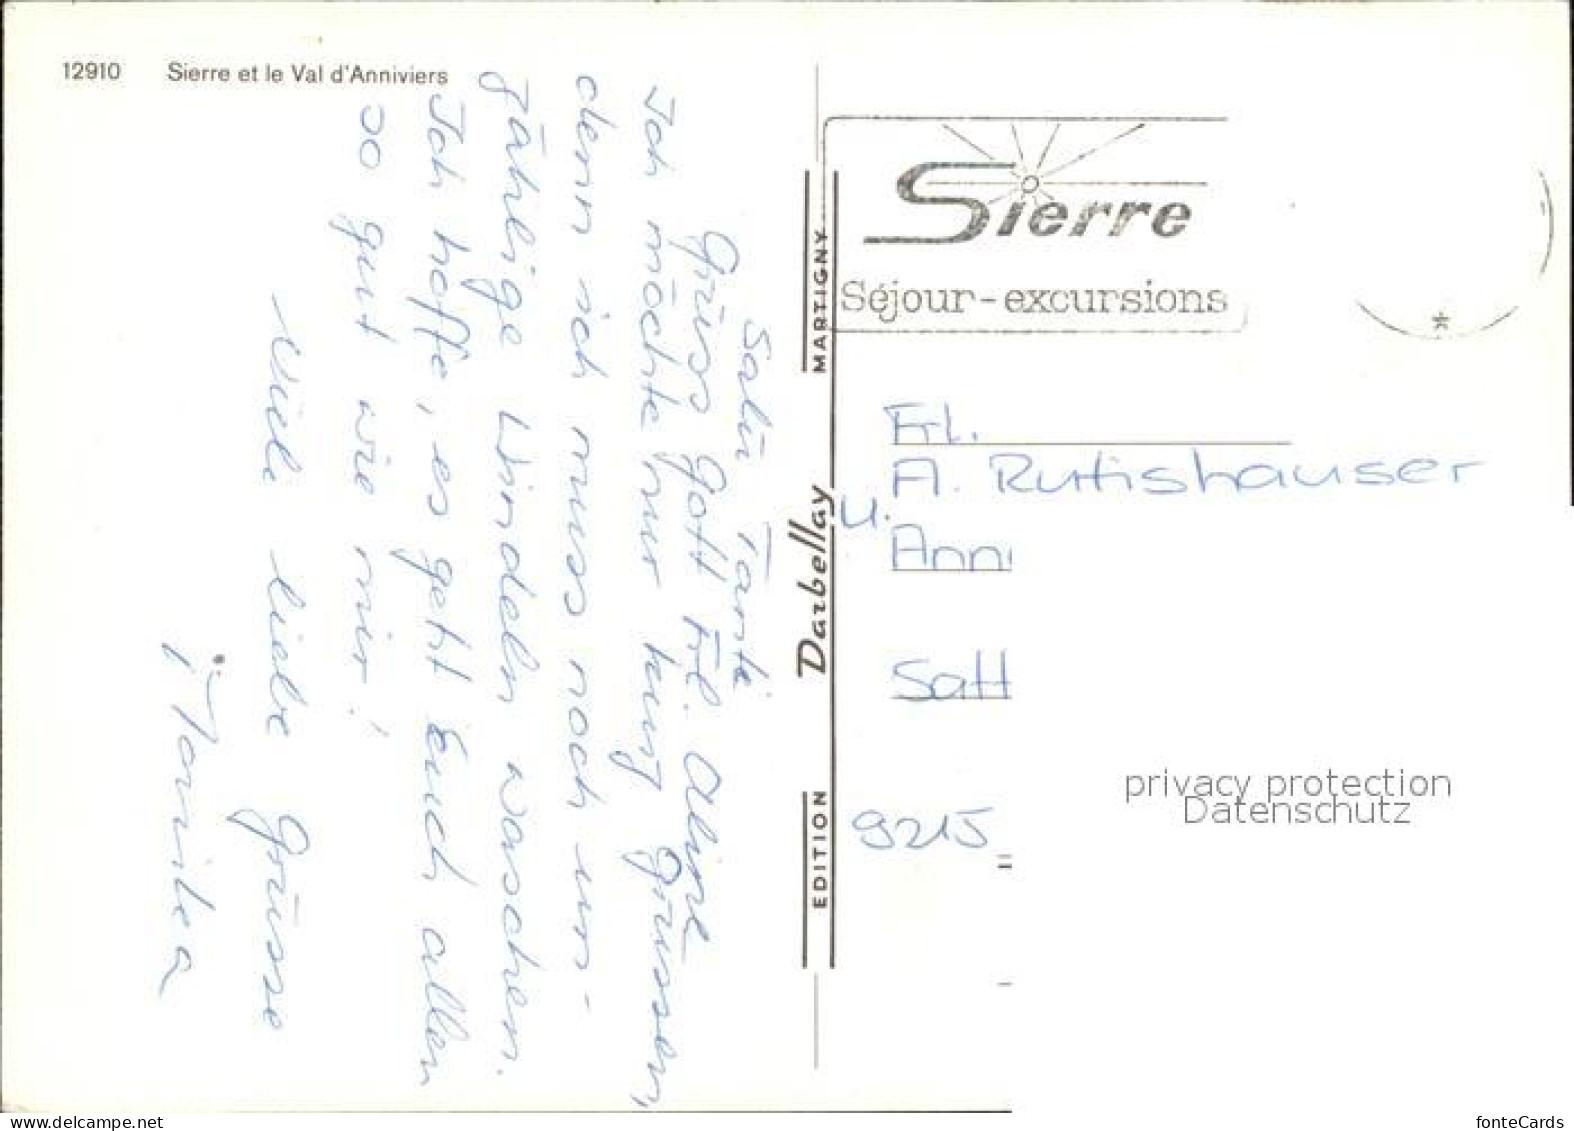 12910 Sierre et le Val d'Anniviers
Salü Tante
Grüss Gott Frl. Aline
Ich möchte nur kurz grüssen,
denn ich muss noch un-
zählige Windeln waschen.
Ich hoffe, es geht Euch allen
so gut wie mir!
Viele liebe Grüsse
Monika
MARTIGNY
Darbellay
EDITION
Sierre
Séjour-excursions
Frl.
A. Rutishauser
u.
Ann
Satt
9215
privacy protection
Datenschutz
www.delcampe.net
fonteCards